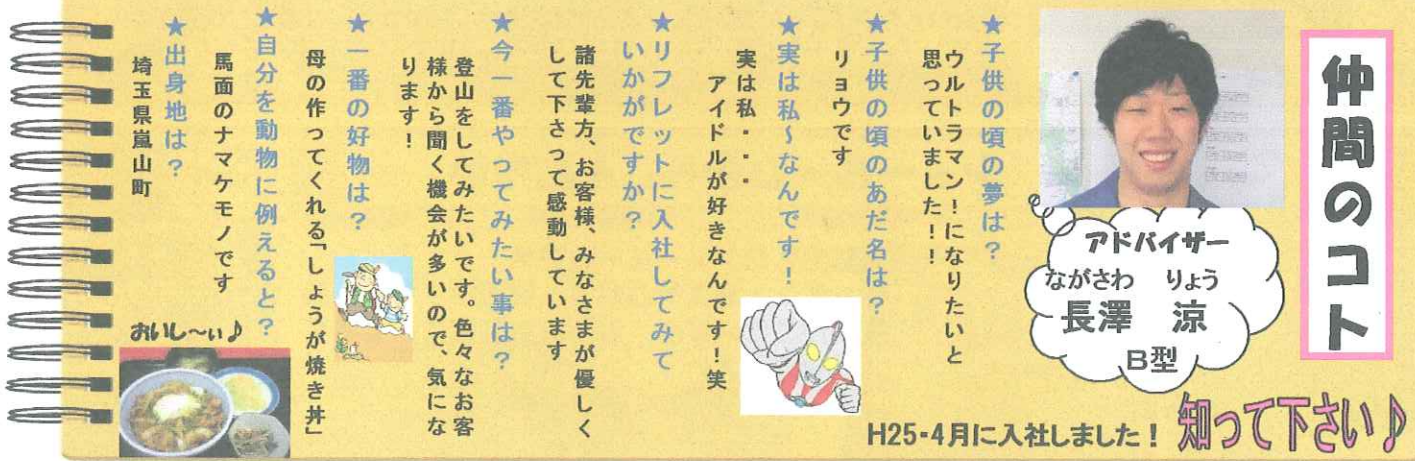 仲間のコト
アドバイザー
ながさわ　りょう
長澤　涼
B型
知って下さい♪
H25・4月に入社しました！
★子供の頃の夢は？
ウルトラマン！になりたいと
思っていました！！
★子供の頃のあだ名は？
リョウです
★実は私～なんです！
実は私・・・
アイドルが好きなんです！笑
★リフレットに入社してみて
いかがですか？
諸先輩方、お客様、みなさまが優しく
して下さって感動しています
★今一番やってみたい事は？
登山をしてみたいです。色々なお客
様から聞く機会が多いので、気にな
ります！
★一番の好物は？
母の作ってくれる「しょうが焼き丼」
★自分を動物に例えると？
馬面のナマケモノです
★出身地は？
埼玉県嵐山町
おいし～い♪